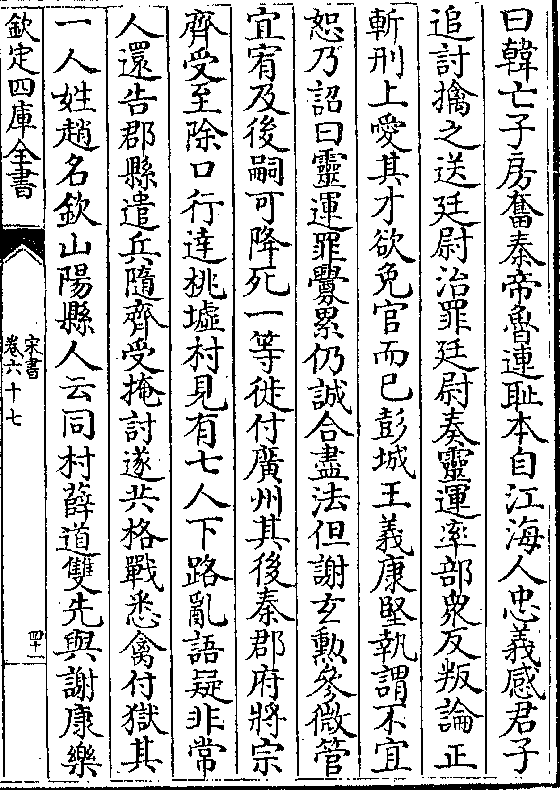 曰韓亡子房奮秦帝魯連恥本自江海人忠義感君子
追討擒之送廷尉治罪廷尉奏靈運率部衆反叛論正
斬刑上愛其才欲免官而已彭城王義康堅執謂不宜
恕乃詔曰靈運罪釁累仍誠合盡法但謝玄勲參微管
宜宥及後嗣可降死一等徙付廣州其後秦郡府將宗
齊受至除口行達桃墟村見有七人下路亂語疑非常
人還告郡縣遣兵隨齊受掩討遂共格戰悉禽付獄其
一人姓趙名欽山陽縣人云同村薛道雙先與謝康樂
欽定四庫全書
宋書
卷六十七
四十一